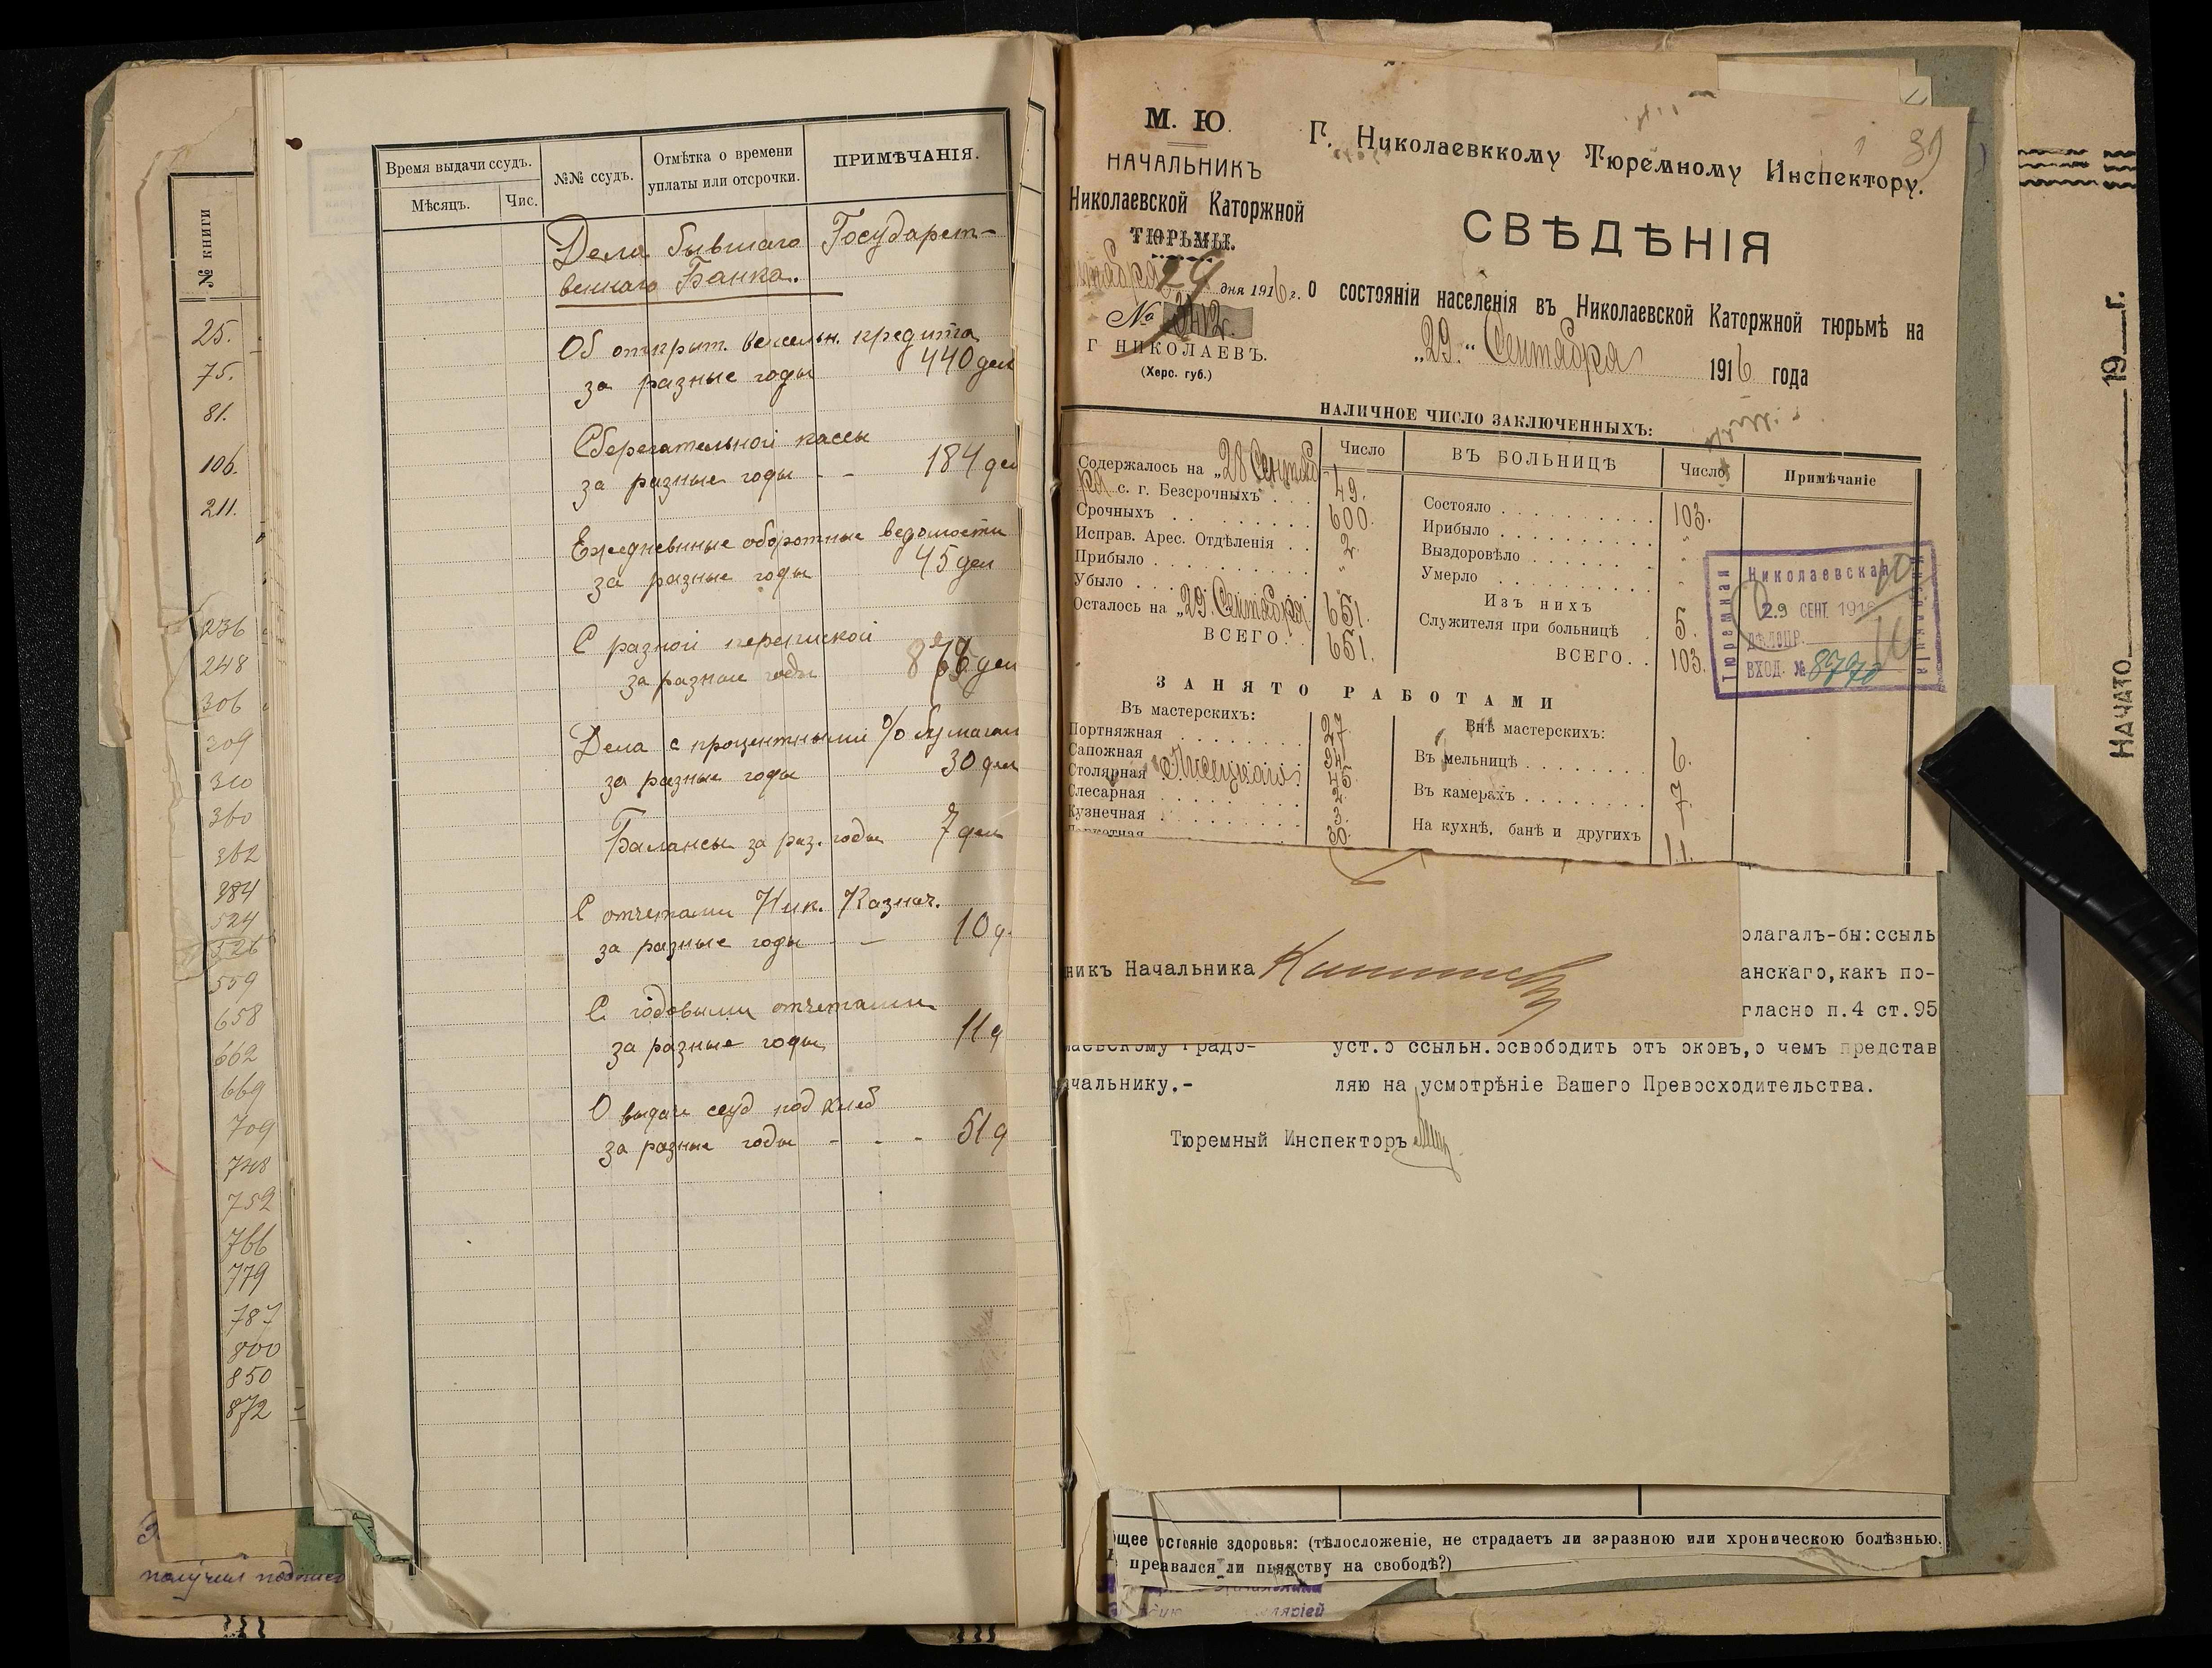 № книги
25.
75.
81.
106.
211.
236
248
306
309
310
360
362
384
524
526
559
658
662
669
709
748
752
766
779
787
800
850
872
получил
Время выдачи ссудъ.
Мѣсяцъ.
Чис.
№№ ссудъ.
Отмѣтка о времени
уплаты или отсрочки.
ПРИМѢЧАНІЯ.
Дела бывшаго Государст-
веннаго Банка.
Об открыт. вексельн. кредита
за разные годы 440 дел
Сберегательной кассы
за разные годы - - 184 дел
Ежедневные оборотные ведомости
за разные годы 45 дел
С разной перепиской
за разные годы дел
Дела с процентными % бумагам
за разные годы 30 дел
Балансы за раз. годы 7 дел
С отчетами Ник. Казнач.
за разные годы - 10 д.
С годовыми отчетами
за разные годы 11 д
О выдаче ссуд под хлеб
за разные годы - - - 51 д
М. Ю.
НАЧАЛЬНИКЪ
Николаевской Каторжной
ТЮРЬМЫ.
29 дня 1916 г.
№ 3412
Г НИКОЛАЕВЪ.
(Херс. губ.)
Г. Николаевккому Тюремному Инспектору.
39
СВѢДѢНІЯ
о состояніи населенія въ Николаевской Каторжной тюрьмѣ на
„29" Сентября 1916 года
НАЛИЧНОЕ ЧИСЛО ЗАКЛЮЧЕННЫХЪ:
Число
ВЪ БОЛЬНИЦѢ
Число
Примѣчаніе
Содержалось на „28 Сентяб
ря с. г. Безсрочныхъ . . . 49.
Срочныхъ . . . 600.
Исправ. Арес. Отдѣленія . . 2.
Прибыло . . . "
Убыло . . . "
Осталось на „29 Сентября 651.
ВСЕГО . 651.
Состояло . . . 103.
Ирибыло . . . "
Выздоровѣло . . . "
Умерло . . . "
Изъ нихъ
Служителя при больницѣ . 5.
ВСЕГО. . 103.
Николаевская
Тюремная
Инспекція
29 СЕНТ. 1916
ДѢЛОПР.
ВХОД. № 8770
ЗАНЯТО РАБОТАМИ
Въ мастерскихъ:
Портняжная . . . 27
Сапожная 34
Столярная 45
Слесарная . . . 2.
Кузнечная . . . 3.
30.
Внѣ мастерскихъ:
Въ мельницѣ . . . 6.
Въ камерахъ . . . 7.
На кухнѣ, банѣ и другихъ 11.
никъ Начальника
олагалъ-бы:ссыль
анскаго,какъ по-
гласно п.4 ст.95
лаевскому Градо-
уст.о ссыльн.освободить отъ оковъ,о чемъ представ
чальнику.-
ляю на усмотрѣніе Вашего Превосходительства.
Тюремный Инспекторъ
бщее остояніе здоровья: (тѣлосложеніе, не страдаетъ ли заразною или хроническою болѣзнью.
преавался ли пьянству на свободѣ?)
19 г.
НАЧАТО